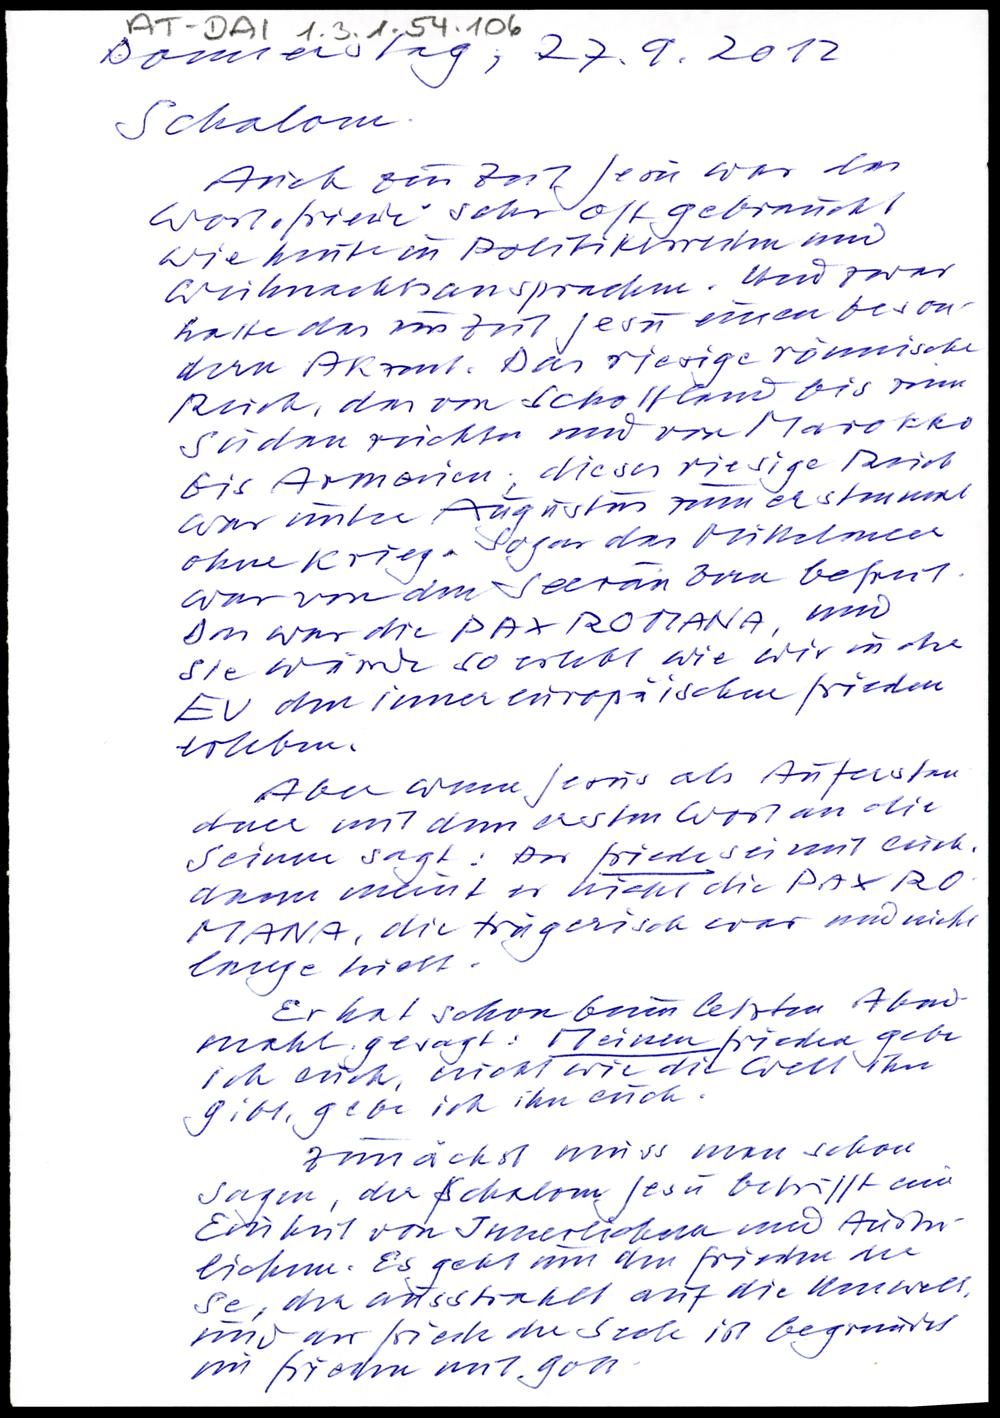 AT-DAI 1.3.1.54.106
Donnerstag, 27.9.2012
Schalom.
Auch zur Zeit Jesu war das
Wort "Friede" sehr oft gebraucht
wie heute in Politikerreden und
Weihnachtsansprachen. Und zwar
hatte das zur Zeit Jesu einen beson-
dern Akzent. Das riesige römische
Reich, das von Schottland bis zum
Südan reichte und von Marokko
bis Armenien, dieses riesige Reich
war unter Augustus zum erstenmal
ohne Krieg. Sogar das Mittelmeer
war von den Seeräubern befreit.
Das war die PAX ROMANA, und
sie wurde so erlebt wie wir in der
EU den innereuropäischen Frieden
erleben.
Aber wenn Jesus als Auferstan
dner mit dem ersten Wort an die
Seinen sagt: Der Friede sei mit euch,
dann meint er nicht die PAX RO-
MANA, die trügerisch war und nicht
lange hielt.
Er hat schon beim letzten Abend-
mahl gesagt: Meinen Frieden gebe
ich euch, nicht wie die Welt ihn
gibt, gebe ich ihn euch.
Zunächst muss man schon
sagen, der Schalom Jesu betrifft eine
Einheit von Innerlichem und Äußer-
lichem. Es geht um den Frieden der
Se, der ausstrahlt auf die Umwelt,
und der Friede der Seele ist begründet
im Frieden mit Gott.